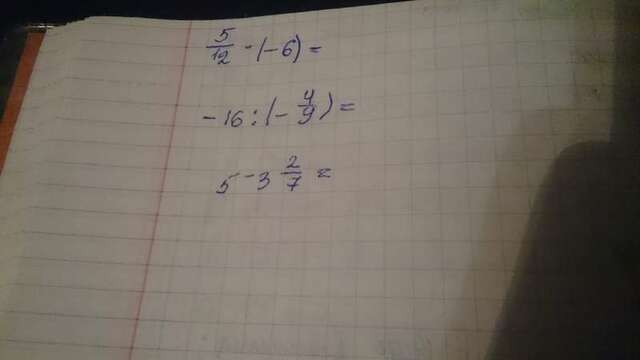 5/12 - (-6) =
-16 : (-4/9) =
5 - 3 2/7 =